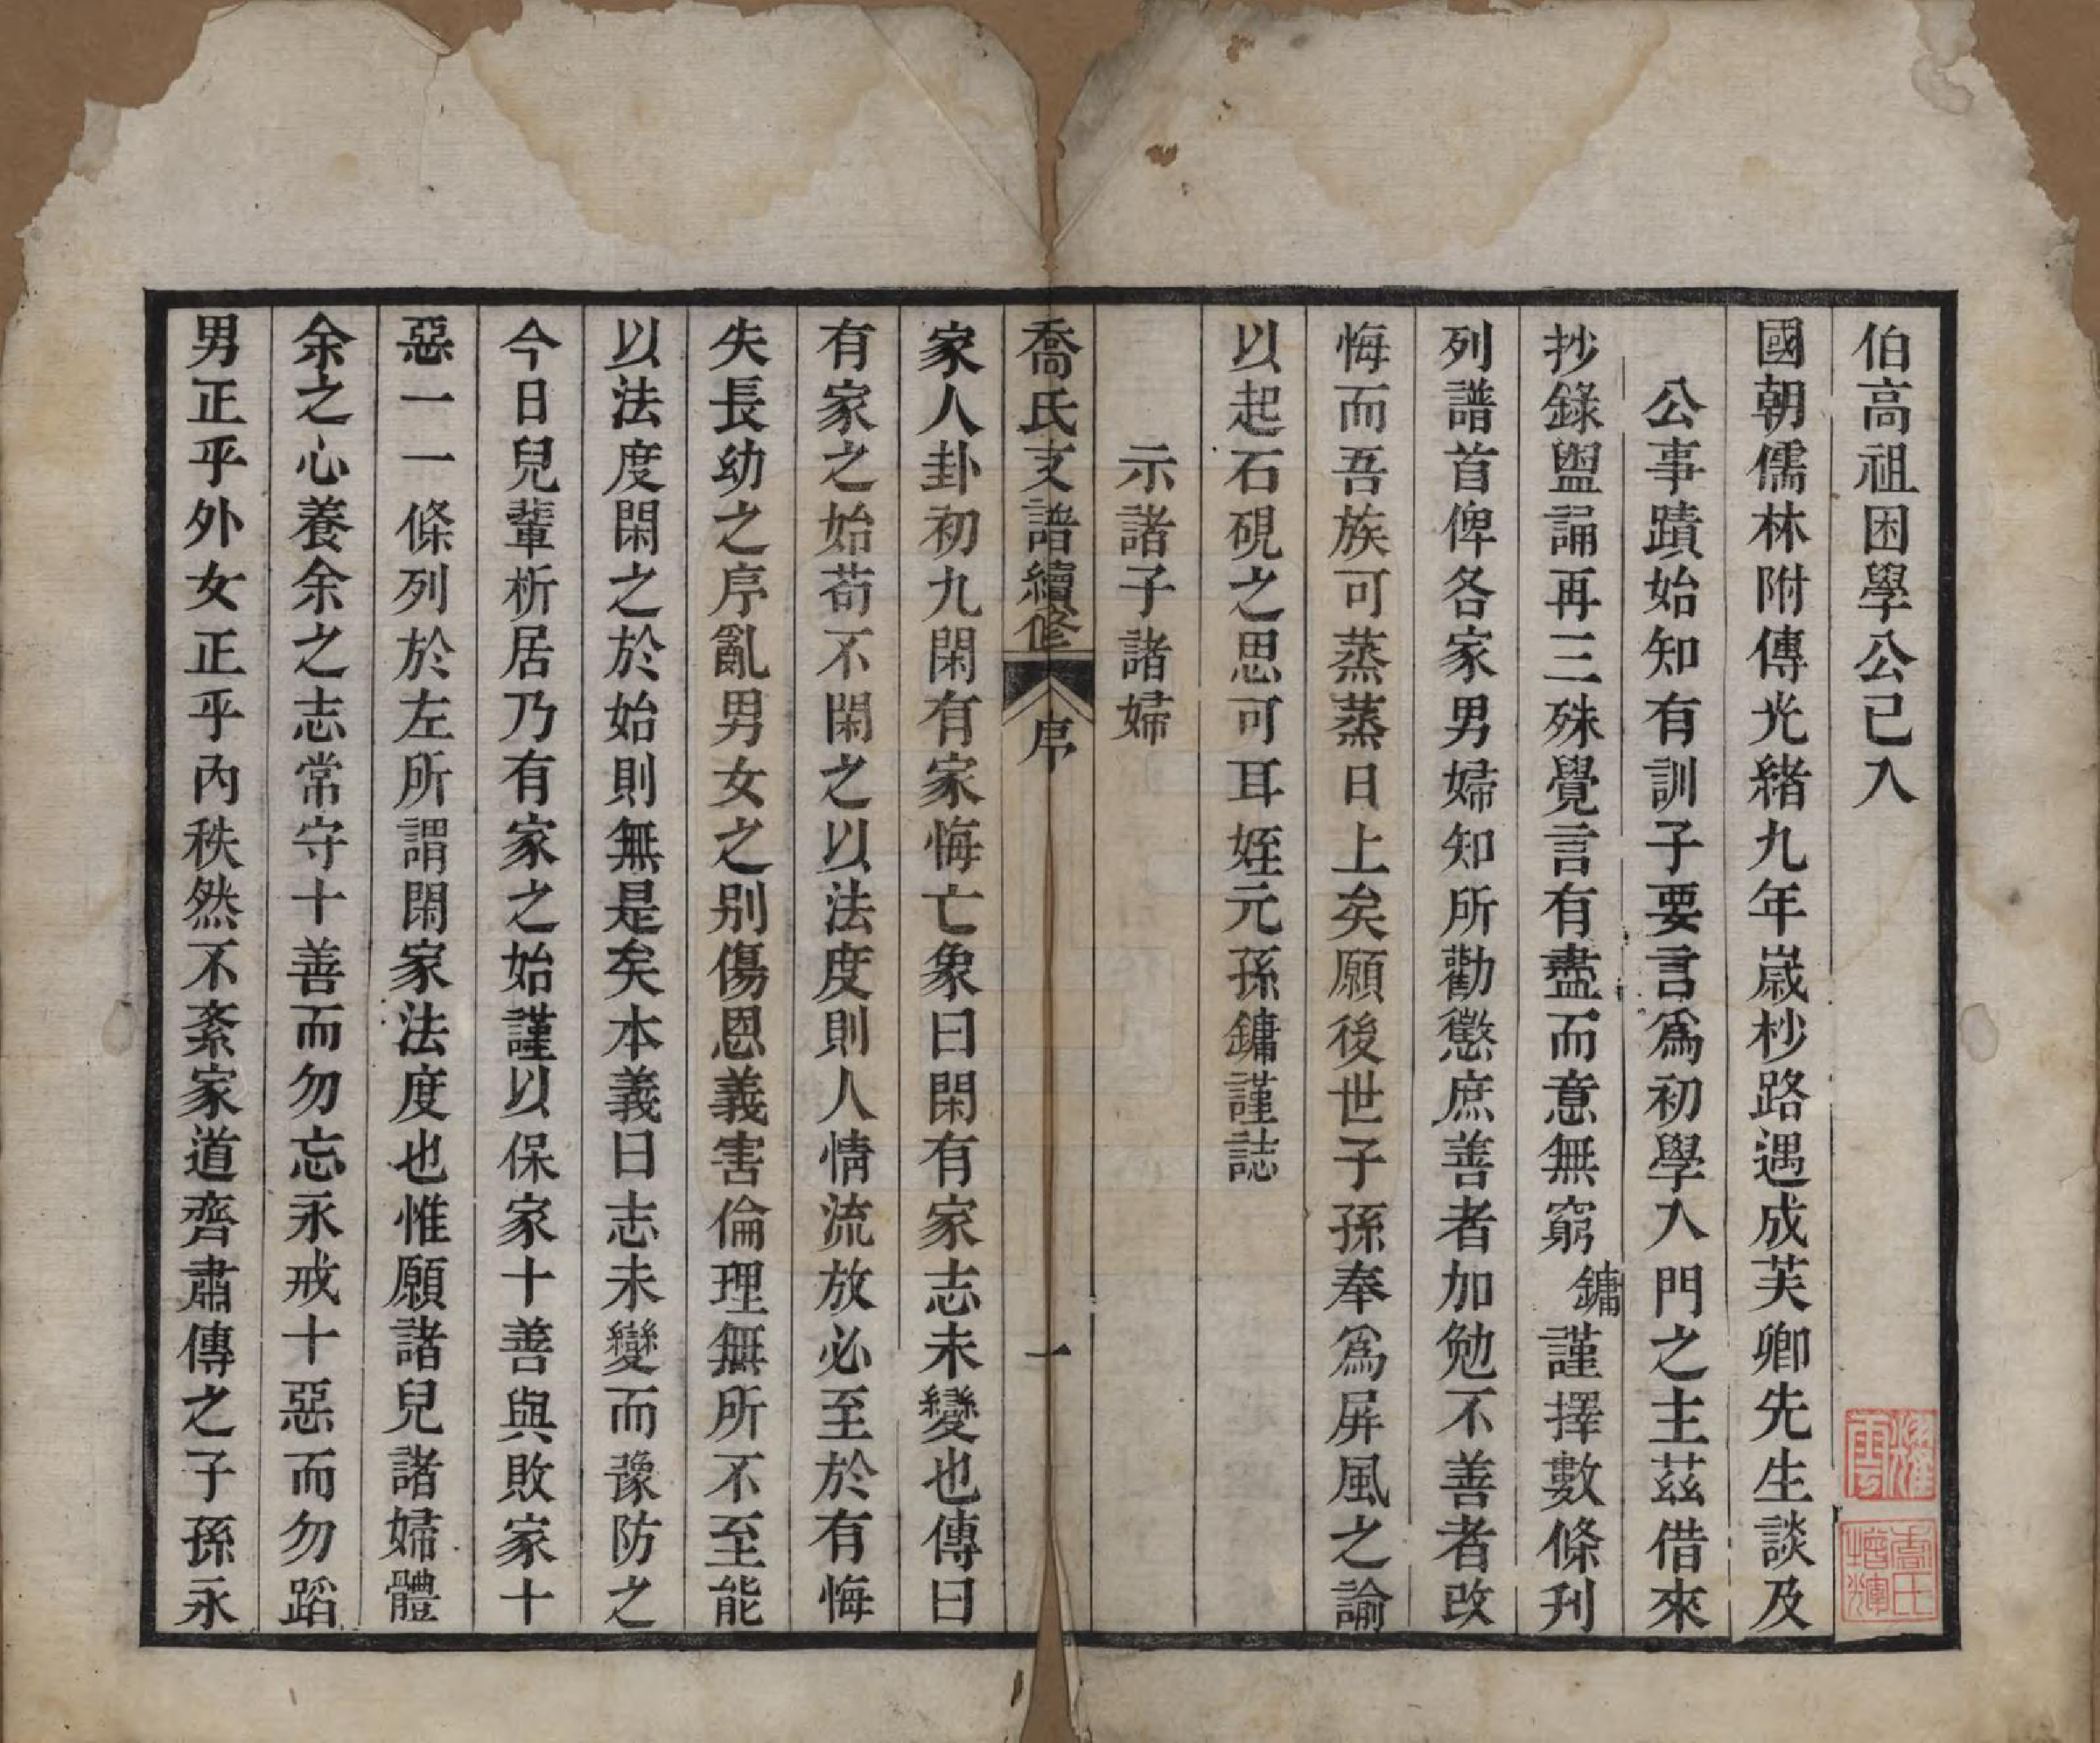 伯高祖困學公已入
國朝儒林附傳光緒九年歲杪路遇成芙卿先生談及
公事蹟始知有訓子要言爲初學入門之主茲借來
抄錄盥誦再三殊覺言有盡而意無窮鏞謹擇數條刊
列譜首俾各家男婦知所勸懲庶善者加勉不善者改
悔而吾族可蒸蒸日上矣願後世子孫奉爲屏風之論
以起石硯之思可耳姪元孫鏞謹誌
示諸子諸婦
喬氏支譜續修 序 一
家人卦初九閑有家悔亡象曰閑有家志未變也傳曰
有家之始苟不閑之以法度則人情流放必至於有悔
失長幼之序亂男女之别傷恩義害倫理無所不至能
以法度閑之於始則無是矣本義曰志未變而豫防之
今日兒輩析居乃有家之始謹以保家十善與敗家十
惡一一條列於左所謂閑家法度也惟願諸兒諸婦體
余之心養余之志常守十善而勿忘永戒十惡而勿蹈
男正乎外女正乎內秩然不紊家道齊肅傳之子孫永